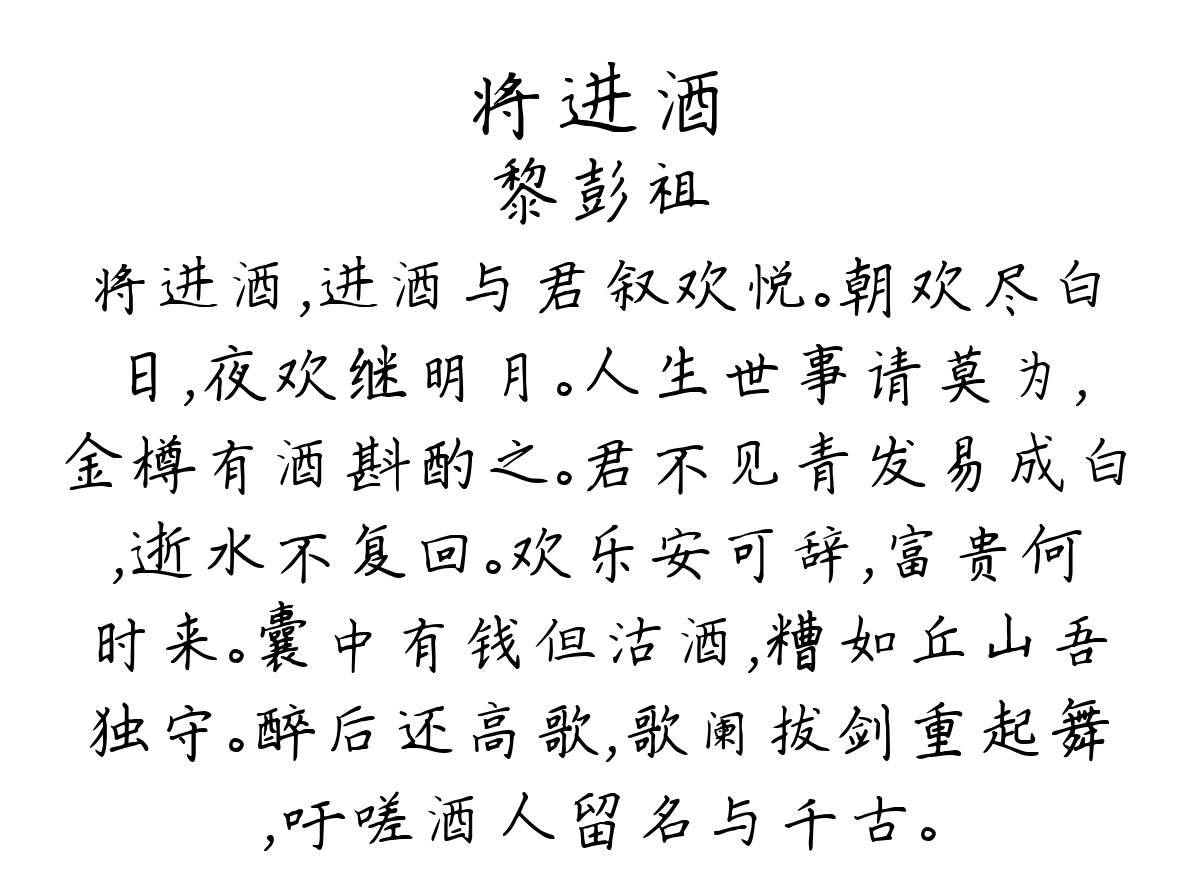 将进酒
黎彭祖
将进酒,进酒与君叙欢悦。朝欢尽白
日,夜欢继明月。人生世事请莫为,
金樽有酒斟酌之。君不见青发易成白
,逝水不复回。欢乐安可辞,富贵何
时来。囊中有钱但沽酒,糟如丘山吾
独守。醉后还高歌,歌阑拔剑重起舞
,吁嗟酒人留名与千古。